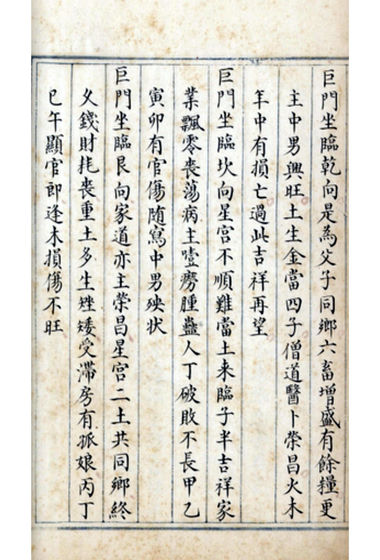 巨門坐臨乾向是為父子同鄉六畜增盛有餘糧更
主中男興旺土生金當四子僧道醫卜榮昌火木
年中有損亡過此吉祥再望
巨門坐臨坎向星宮不順難當土來臨子半吉祥家
業飄零喪蕩病主噎癆腫蠱人丁破敗不長甲乙
寅卯有官傷随寫中男殃状
巨門坐臨艮向家道亦主榮昌星宮二土共同鄉終
久錢財耗喪重土多生矬矮受滯房有孤娘丙丁
巳午顯官即逢木損傷不旺